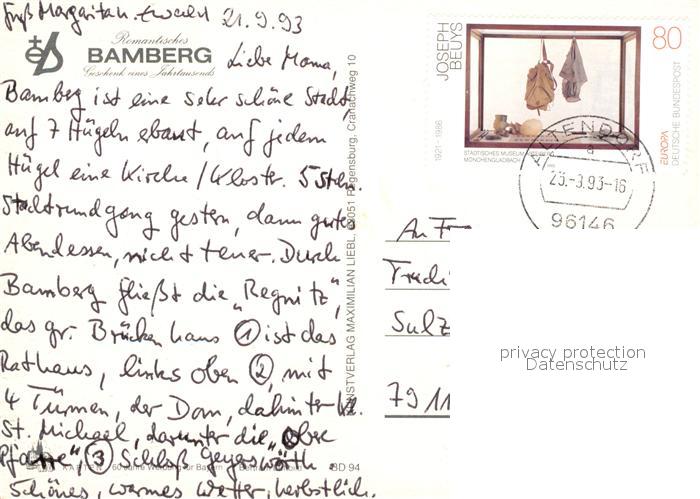 Gruß Margarita u. Ewald 21.9.93
Romantisches
BAMBERG
Geschenk eines Jahrtausends
Liebe Mama,
Bamberg ist eine sehr schöne Stadt,
auf 7 Hügeln ebaut, auf jedem
Hügel eine Kirche/Kloster. 5 Stdn.
Stadtrundgang gestern, dann gutes
Abendessen, nicht teuer. Durch
Bamberg fließt die „Regnitz",
das gr. Brückenhaus ① ist das
Rathaus, links oben ②, mit
4 Türmen, der Dom, dahinter
St. Michael, darunter die „Obere
Pfarre", ③ Schloß Geyerswörth.
Schönes, warmes Wetter, herbstlich.
KARTEN 60 Jahre Werbung für Bayern BD 94
KUNSTVERLAG MAXIMILIAN LIEBL, 93051 Regensburg, Cranachweg 10
JOSEPH
BEUYS
1921-1986
80
DEUTSCHE BUNDESPOST
EUROPA
STÄDTISCHES MUSEUM
MÖNCHENGLADBACH
ALTENDORF
a
23.-9.93-16
96146
An Fr
Trudi
Sulz
79 11
privacy protection
Datenschutz